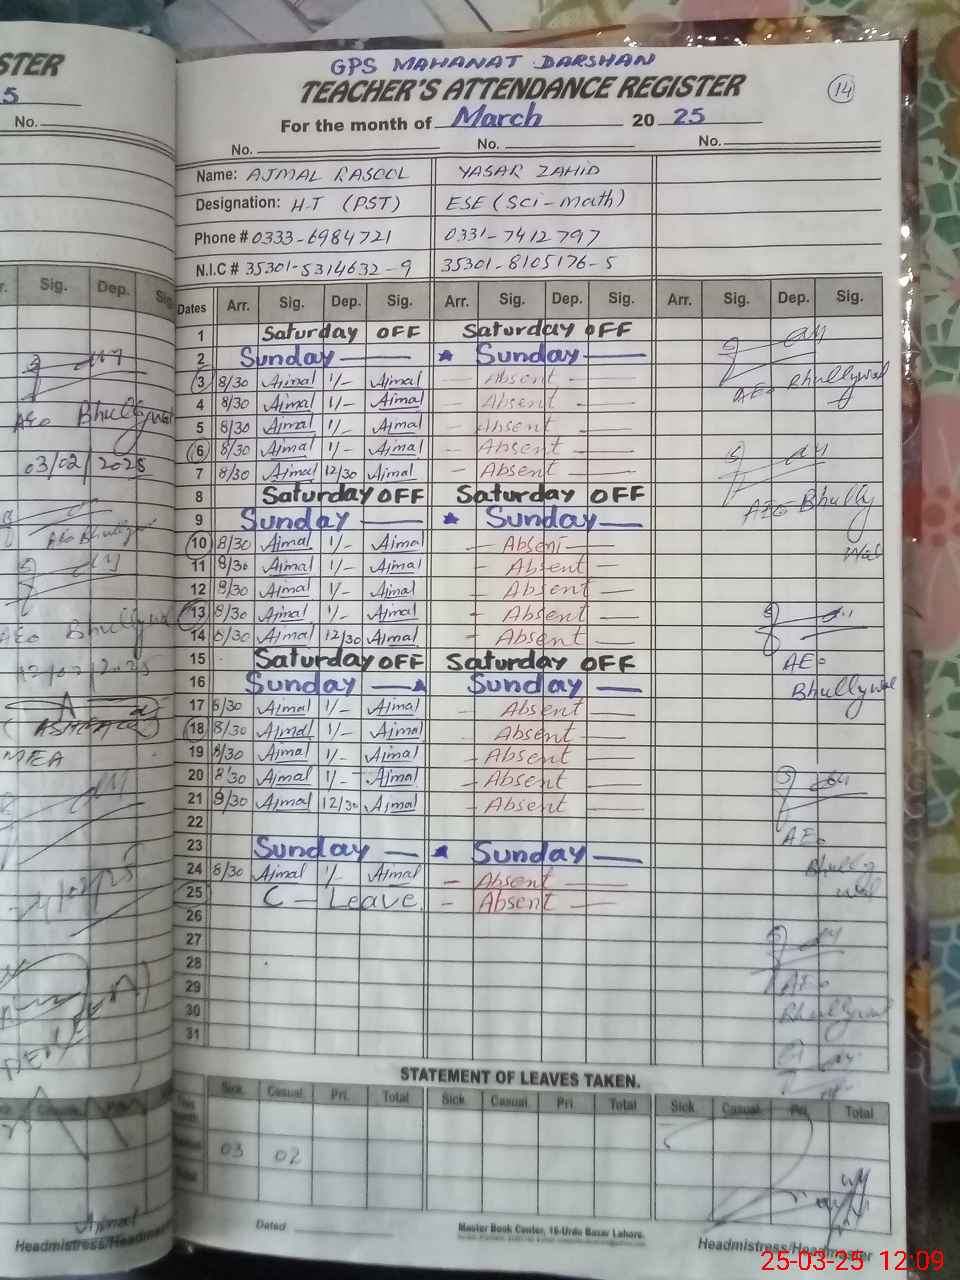 STER
5
No.
r. Sig. Dep. Sig
AEo Bhullywal
03/02/2025
AEo Bhullywal
AEo Bhullywal
12/02/2025
MEA
Ajmal
Headmistress/Headmaster
GPS MAHANAT DARSHAN
TEACHER'S ATTENDANCE REGISTER
14
For the month of March 20 25
No. No. No.
Name: AJMAL RASOOL YASAR ZAHID
Designation: H-T (PST) ESE (Sci-math)
Phone # 0333-6984721 0331-7412797
N.I.C # 35301-5314632-9 35301-8105176-5
Dates Arr. Sig. Dep. Sig. Arr. Sig. Dep. Sig. Arr. Sig. Dep. Sig.
1 Saturday OFF Saturday OFF
2 Sunday Sunday
3 8/30 Ajmal 1/- Ajmal Absent AEo Bhullywal
4 8/30 Ajmal 1/- Ajmal Absent
5 8/30 Ajmal 1/- Ajmal Absent
6 8/30 Ajmal 1/- Ajmal Absent
7 8/30 Ajmal 12/30 Ajmal Absent
8 Saturday OFF Saturday OFF AEO Bhully
9 Sunday Sunday
10 8/30 Ajmal 1/- Ajmal Absent wal
11 8/30 Ajmal 1/- Ajmal Absent
12 8/30 Ajmal 1/- Ajmal Absent
13 8/30 Ajmal 1/- Ajmal Absent
14 8/30 Ajmal 12/30 Ajmal Absent
15 Saturday OFF Saturday OFF AEo
16 Sunday Sunday Bhullywal
17 8/30 Ajmal 1/- Ajmal Absent
18 8/30 Ajmal 1/- Ajmal Absent
19 8/30 Ajmal 1/- Ajmal Absent
20 8/30 Ajmal 1/- Ajmal Absent
21 8/30 Ajmal 12/30 Ajmal Absent
22 AEo
23 Sunday Sunday Bhully
24 8/30 Ajmal 1/- Ajmal Absent wal
25 C - Leave Absent
26
27
28
29 AEo
30 Bhullywal
31
STATEMENT OF LEAVES TAKEN.
Sick Casual Pri. Total Sick Casual Pri. Total Sick Casual Pri. Total
03 02
Dated
Master Book Center, 16-Urdu Bazar Lahore.
Headmistress/Headmaster
25-03-25 12:09